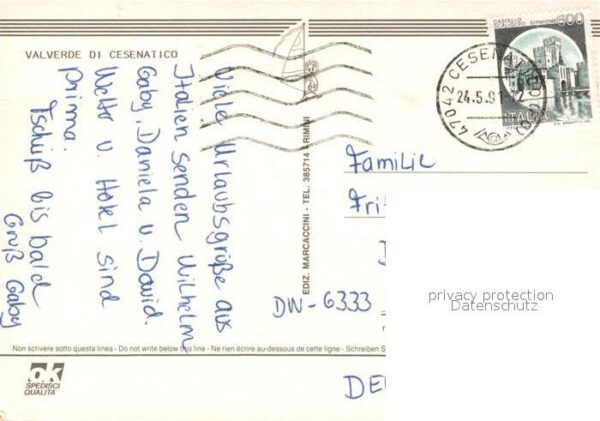 VALVERDE DI CESENATICO
Viele Urlaubsgrüße aus
Italien senden Wilhelm
Gaby, Daniela u. David.
Wetter u. Hotel sind
prima.
Tschüß bis bald
Gruß Gaby
EDIZ. MARCACCINI - TEL. 385714 - RIMINI
CASTELLO SCALIGERO SIRMIONE
600
ITALIA
47042 CESENATICO
24.5.91
Familie
Fri
DW-6333
DE
privacy protection
Datenschutz
Non scrivere sotto questa linea - Do not write below this line - Ne rien écrire au-dessous de cette ligne - Schreiben S
ok
SPEDISCI
QUALITA'